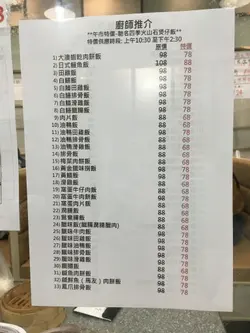 廚師推介
**午市特價-馳名四季火山石煲仔飯**
特價供應時段: 上午10:30 至下午2:30
原價 特價
1) 大澳蝦乾肉餅飯 98 78
2) 日式鰻魚飯 108 88
3) 田雞飯 98 78
4) 白鱔飯 98 78
5) 白鱔田雞飯 98 78
6) 白鱔排骨飯 98 78
7) 白鱔滑雞飯 98 78
8) 白鱔臘腸飯 98 78
9) 肉片飯 88 68
10) 油鴨飯 88 68
11) 油鴨田雞飯 98 78
12) 油鴨滑雞飯 98 78
13) 油鴨排骨飯 98 78
14) 排骨飯 88 68
15) 梅菜肉餅飯 88 68
16) 黃金鹹味蜆飯 98 78
17) 黃鱔飯 98 78
18) 滑雞飯 88 68
19) 窩蛋牛仔肉飯 98 78
20) 窩蛋牛肉飯 88 68
21) 窩蛋肉片飯 88 68
22) 88 68
23) 88 68
24) 臘味飯 88 68
25) 臘味牛肉飯 98 78
26) 臘味田雞飯 98 78
27) 臘味油鴨飯 98 78
28) 臘味排骨飯 98 78
29) 臘味滑雞飯 98 78
30) 臘腸飯 88 68
31) 鹹魚肉餅飯 88 68
32) 鹹鮮魚（馬友）肉餅飯 98 78
33) 鳳爪排骨飯 98 78